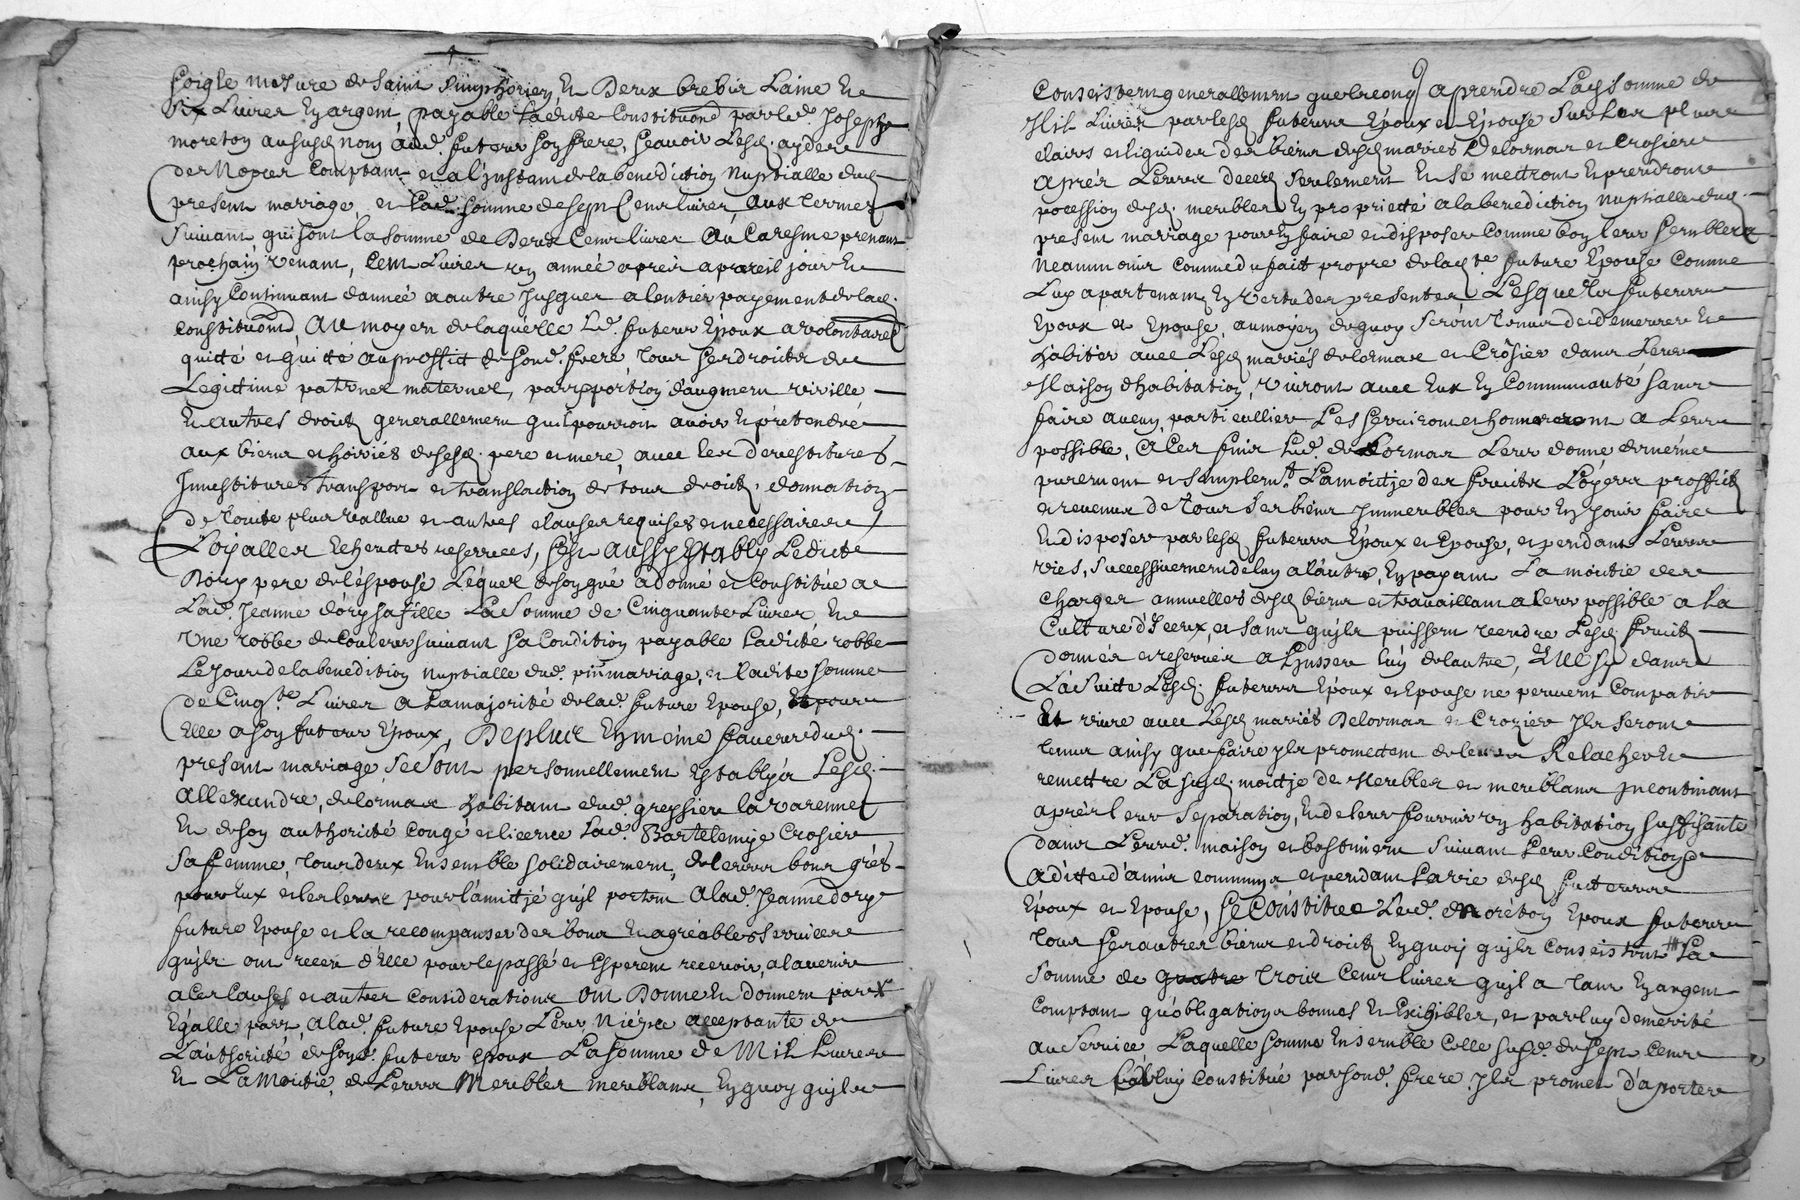 Soigle mesure de Saint Simphorien, Et Deux brebis Laine Et
Six Livres En argent, payable Ladite Constituon̄ par led. Joseph
moreton au susd nom aud. futeur son frere, Scavoir Lesd.
de Nopces Comptant et a l'jnstant de la benediction Nuptialle dud
present mariage, et Lad. Somme de Sept Cent livres, aux termes
Suivant, qui sont la somme de Deux Cent livres Au Caresme prenant
prochain venant, Cent Livres en année apres a pareil jour Et
ainsy Continuant d'année a autre Jusques a l'entier payement de lad.
Constituon̄, Au moyen de laquelle Led. futeur Epoux a volontaire
quitté et quitte au proffit de Sond. frere tous Ses droits de
Legittime paternel maternel, part portion d'augment
Et autres droits generallement qu'il pourroit avoir Et prétendre
aux biens et hoiries de sesd. pere et mere, avec les devestitures
Jnvestitures transport et translaction de tous droits, donnation
de toute plus vallue et autres clauses requises et necessaires
Loyalles reservées, S'est aussy Estably Ledit
Dory pere de l'épouse Lequel de son gré a donné et Constitué a
Lad. Jeanne dory sa fille La Somme de Cinquante Livres Et
Une robbe de Couleur suivant Sa Condition payable Ladite robbe
Le Jour de la benedition Nuptialle dud. pnt mariage, et ladite somme
de Cinqte Livres a la majorité de lad. future Epouse, Et pour
Elle a son futeur Epoux, Deplus Et En méme faveur dud.
present mariage Se Sont personnellement Establys Lesd.
Allexandre delormas habitant dud. gressieu la varenne
Et de son authorité Congé et licence Lad. Bartelemye Crosier
Sa femme, tous deux Ensemble Solidairement, de leurs bons grés
pour Eux et les leurs pour l'amitjé qu'jl portent a lad. Jeanne dory
future Epouse et la recompanser des bons Et agréables Services
qu'jls ont receu d'Elle pour le passé et Esperent recevoir a l'avenir
a Ces Causes et autres Considerations Ont Donné Et donnent par
Egalle part, a lad. future Epouse Leur Niépce acceptante de
L'authorité de sond. futeur Epoux La somme de Mil Livres
Et La Moitié de Leurs Meubles meublans, En quoy qu'jls
Consistent generallement quelconq a prendre Lad Somme de
Mil Livres par lesd futeurs Epoux et Epouse Sur les plus
clairs et liquides des biens desd mariés Delormas et Crosier
apres Leurs deced Seulement Et Se mettront Et prendront
pocession desd. meubles En proprietté a la benediction nuptialle dud
present mariage pour En faire et disposer Comme bon leur Semblera
Neammoins Comme du fait propre de lad. future Epouse Comme
Luy apartenant En Vertu des presentes, Lesquels futeurs
Epoux et Epouse, au moyen de quoy Seront tenus de demeurer Et
habiter avec Lesd mariés delormas et Crosier dans Leur
Maison d'habitation, Vivront avec Eux En Communauté Sans
faire aucun particullier Les Serviront et honnoreront a Leur
possible, a Ces fins Led. delormas Leur donne de méme
purement et Simplemt Lamoitje des fruits Loyers proffits
et revenus de tous Ses biens Jmmeubles pour En Jouir faire
Et disposer par lesd futeurs Epoux et Epouse, et pendant Leurs
vies, Successivement de lun a l'autre, En payant La moitié des
charges annuelles desd biens et travaillant a leur possible a la
Culture d'Jceux, et Sans qu'jls puissent vendre Lesd fruits
donnés et reservés a l'jnsceu lun de lautre, Que Sy dans
La Suitte Lesd. futeurs Epoux et Epouse ne peuvent Compatir
Et vivre avec Lesd mariés Delormas et Crozier Jls Seront
tenus ainsy que faire Jls promettent de leur Relacher Et
remettre La susd. moitje de Meubles et meublans Jncontinant
apres leur Separation, Et de leur fournir un habitation Suffisante
dans Leurd. maison et bastiment Suivant Leur Condition
a ditte d'amis communs et pendant La vie desd futeurs
Epoux et Epouse, Se Constitue Led. moréton Epoux futeur
tous Ses autres biens et droits En quoy qu'jls Consistent La
Somme de quatre trois Cent livres qu'jl a tant En argent
Comptant qu'obligations bonnes Et Exigibles, et par luy demerité
au Service Laquelle Somme Ensemble Celle susd. de Sept Cent
Livres a luy Constitué par sond. frere Jls promet d'aporter